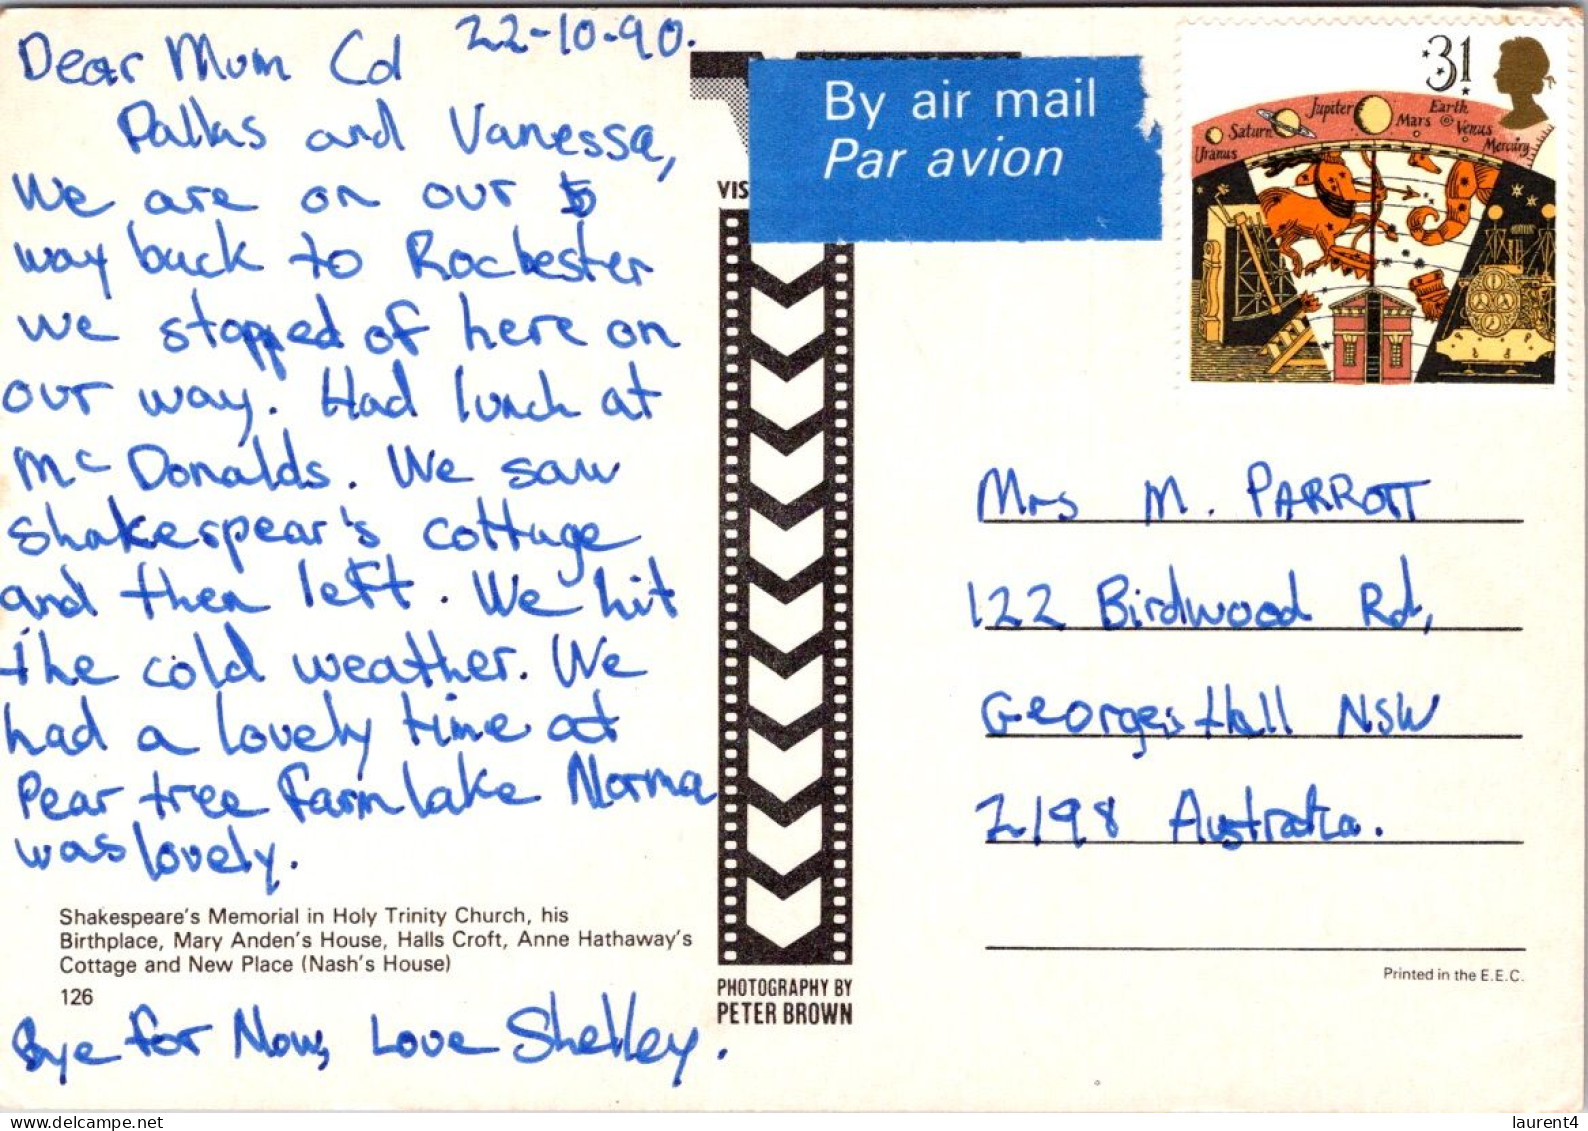 22-10-90.
Dear Mum Col
Dallas and Vanessa,
We are on our
way back to Rochester
we stopped of here on
our way. Had lunch at
McDonalds. We saw
Shakespear's cottage
and then left. We hit
the cold weather. We
had a lovely time at
Pear tree Farm lake Norma
was lovely.
Shakespeare's Memorial in Holy Trinity Church, his
Birthplace, Mary Anden's House, Halls Croft, Anne Hathaway's
Cottage and New Place (Nash's House)
126
Bye for Now, Love Shelley.
VIS
PHOTOGRAPHY BY
PETER BROWN
By air mail
Par avion
31
Uranus Saturn Jupiter Mars Earth Venus Mercury
Mrs M. PARROTT
122 Birdwood Rd,
Georges Hall NSW
2198 Australia.
Printed in the E.E.C.
www.delcampe.net
laurent4